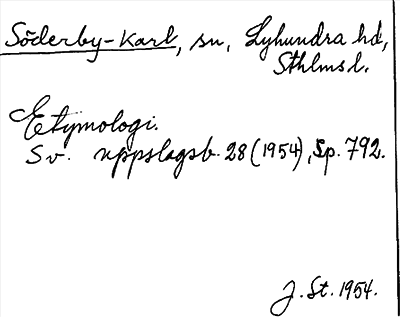 Söderby-Karl, sn, Lyhundra hd,
Sthlms l.
Etymologi.
Sv. uppslagsb. 28 (1954), Sp. 792.
J. St. 1954.